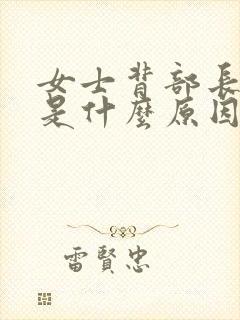 女士背部長
是什麼原因
雷賢忠